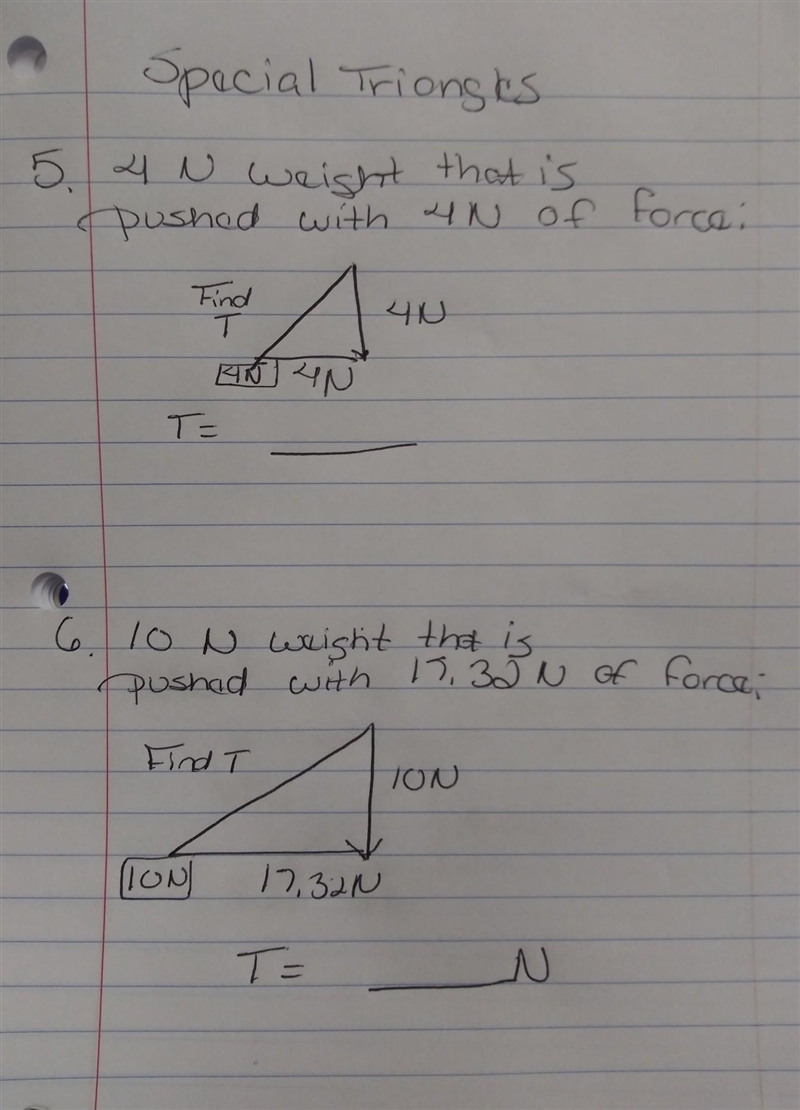 Special Triangles
5. 4 N weight that is
pushed with 4N of force:
Find
T
4N
4N 4N
T=
6. 10 N weight that is
pushed with 17.32 N of force:
Find T
10N
10N 17.32N
T= N